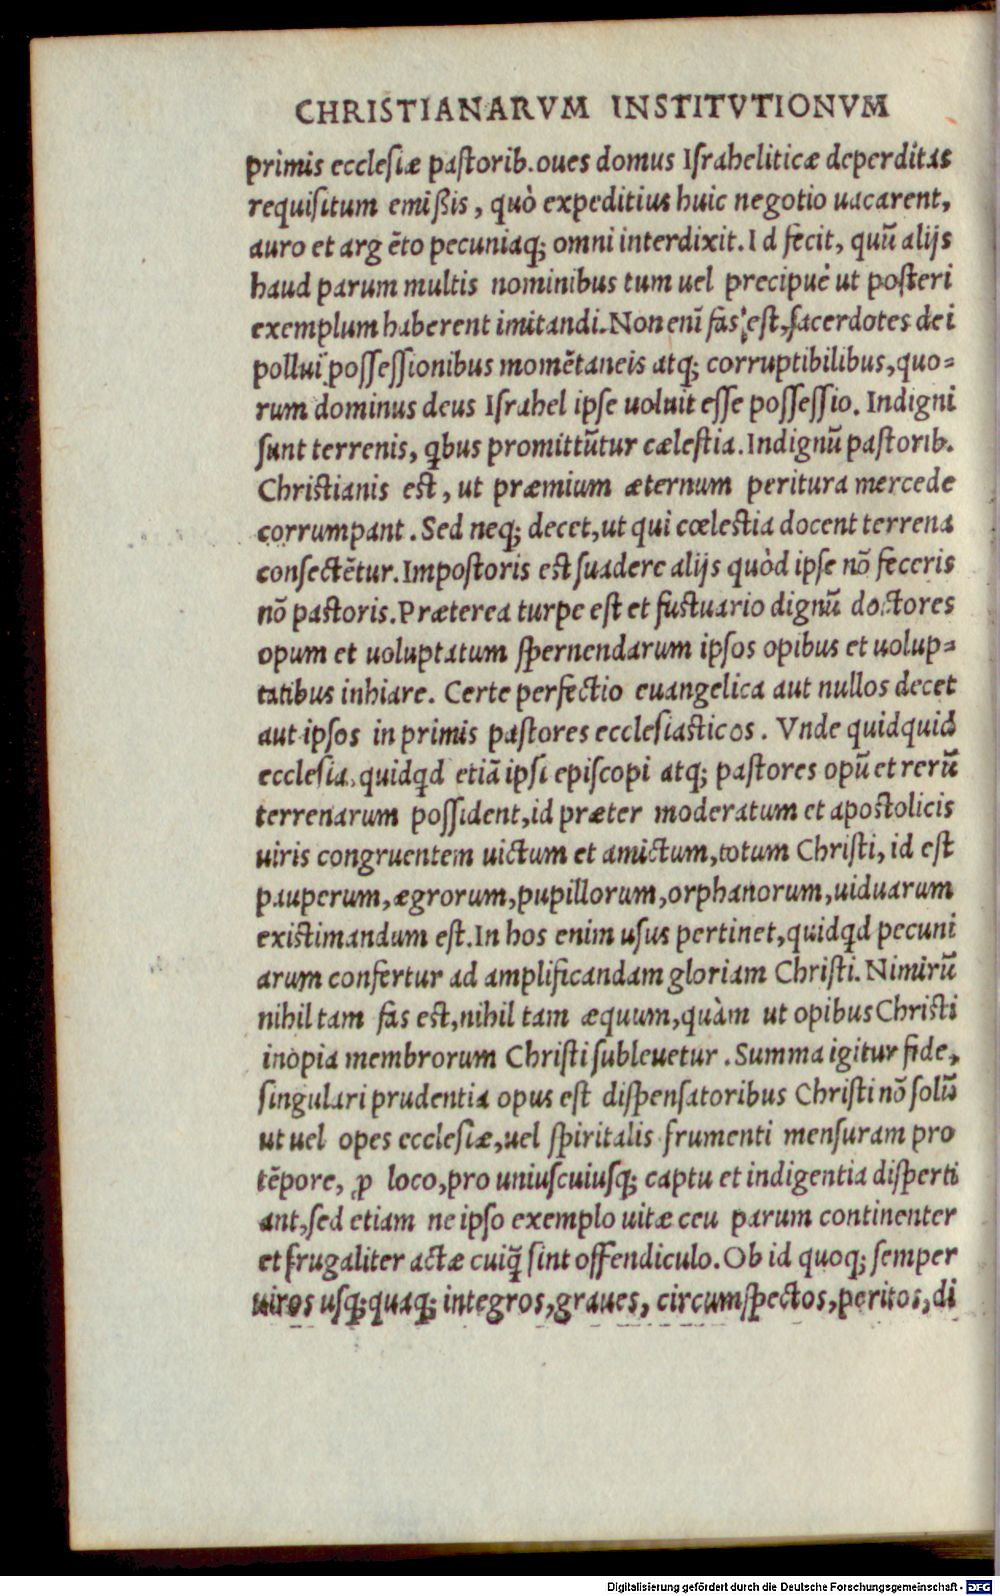 CHRISTIANARVM INSTITVTIONVM
primis ecclesiæ paſtorib. oues domus Iſraheliticæ deperditas
requiſitum emißis, quò expeditius huic negotio uacarent,
auro et argẽto pecuniaq; omni interdixit. Id fecit, quũ alijs
haud parum multis nominibus tum uel precipuè ut poſteri
exemplum haberent imitandi. Non enĩ fas eſt, ſacerdotes dei
pollui poſſeſſionibus momẽtaneis atq; corruptibilibus, quo-
rum dominus deus Iſrahel ipſe uoluit eſſe poſſeſſio. Indigni
ſunt terrenis, qbus promittũtur cæleſtia. Indignũ paſtorib.
Chriſtianis eſt, ut præmium æternum peritura mercede
corrumpant. Sed neq; decet, ut qui cœleſtia docent terrena
conſectẽtur. Impoſtoris eſt ſuadere alijs quòd ipſe nõ feceris
nõ paſtoris. Præterea turpe eſt et fuſtuario dignũ doctores
opum et uoluptatum ſpernendarum ipſos opibus et uolup-
tatibus inhiare. Certe perfectio euangelica aut nullos decet
aut ipſos in primis paſtores eccleſiaſticos. Vnde quidquid
eccleſia, quidqd etiã ipſi epiſcopi atq; paſtores opũ et rerũ
terrenarum poſſident, id præter moderatum et apoſtolicis
uiris congruentem uictum et amictum, totum Chriſti, id eſt
pauperum, ægrorum, pupillorum, orphanorum, uiduarum
exiſtimandum eſt. In hos enim uſus pertinet, quidqd pecuni
arum confertur ad amplificandam gloriam Chriſti. Nimirũ
nihil tam fas eſt, nihil tam æquum, quàm ut opibus Chriſti
inopia membrorum Chriſti ſubleuetur. Summa igitur fide,
ſingulari prudentia opus eſt diſpenſatoribus Chriſti nõ ſolũ
ut uel opes eccleſiæ, uel ſpiritalis frumenti menſuram pro
tẽpore, ꝓ loco, pro uniuſcuiuſq; captu et indigentia diſperti
ant, ſed etiam ne ipſo exemplo uitæ ceu parum continenter
et frugaliter actæ cuiq̃ ſint offendiculo. Ob id quoq; ſemper
uiros uſq;quaq; integros, graues, circumſpectos, peritos, di
Digitalisierung gefördert durch die Deutsche Forschungsgemeinschaft - DFG